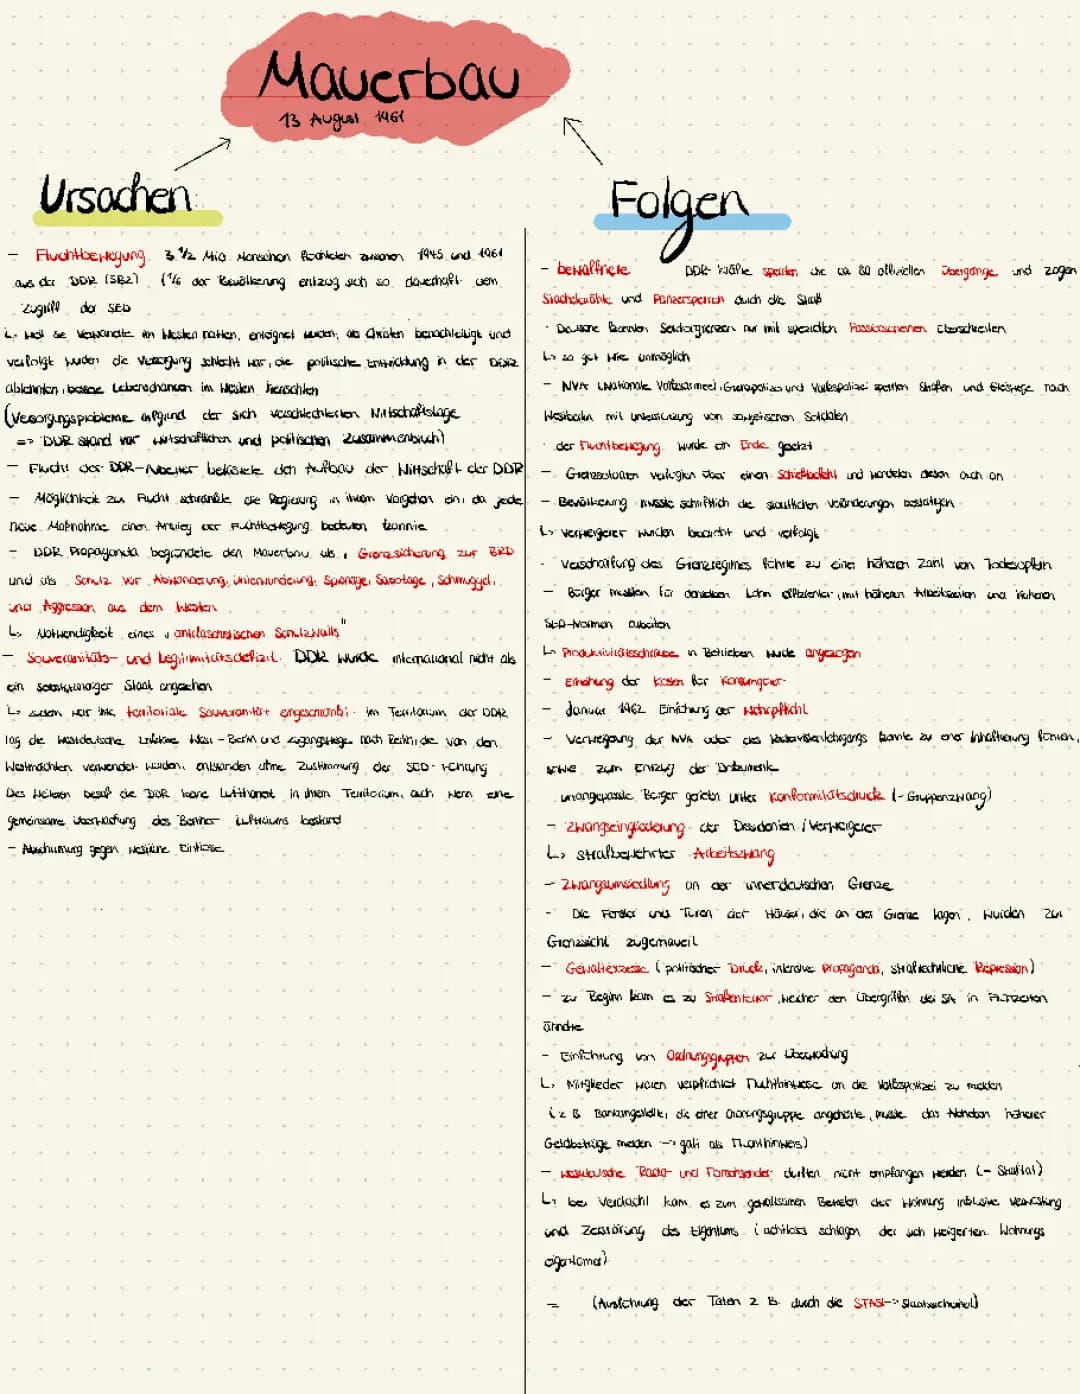 Mauerbau
13 August 1961
Ursachen
- Fluchtbewegung 3 1/2 Mio. Menschen flüchteten zwischen 1945 und 1961
aus der DDR (SBZ) (1/6 der Bevölkerung entzog sich so dauerhaft dem
Zugriff der SED
↳ weil sie Verwandte im Westen hatten, enteignet wurden, als Christen benachteiligt und
verfolgt wurden die Versorgung schlecht war, die politische Entwicklung in der
ablehnten, bessere Lebenschancen im Westen herrschten
(Versorgungsprobleme aufgrund der sich verschlechterten Wirtschaftslage
=> DDR stand vor wirtschaftlichen und politischen Zusammenbruch)
- Flucht der DDR-Arbeiter belastete den Aufbau der Wirtschaft der DDR
- Möglichkeit zur Flucht schränkte die Regierung in ihrem Vorgehen ein, da jede
neue Maßnahme einen Anstieg der Fluchtbewegung bedeuten konnte
- DDR Propaganda begründete den Mauerbau als Grenzsicherung zur BRD
und als Schutz vor Abwanderung, Unterwanderung, Spionage, Sabotage, Schmuggel,
und Aggression aus dem Westen
↳ Notwendigkeit eines „antifaschistischen Schutzwalls"
- Souveränitäts- und Legitimitätsdefizit. DDR wurde international nicht als
ein selbstständiger Staat angesehen
↳ zudem war ihre territoriale Souveränität eingeschränkt im Territorium der DDR
lag die westdeutsche West-Berlin und Zugangswege nach Berlin, die von den
Westmächten verwendet wurden, entstanden ohne Zustimmung der SED-Führung
Des Weiteren besaß die DDR keine Lufthoheit in ihrem Territorium, auch wenn eine
gemeinsame Überwachung des Berliner Luftraums bestand
- Abschirmung gegen westliche Einflüsse
Folgen
- bewaffnete DDR-Kräfte sperrten die ca 80 offiziellen Übergänge und zogen
Stacheldrähte und Panzersperren durch die Stadt
- Deutsche konnten Sektorgrenzen nur mit speziellen Passierscheinen überschreiten
↳ so gut wie unmöglich
- NVA (Nationale Volksarmee), Grenzpolizei und Volkspolizei sperrten Straßen und Gleiswege nach
Westberlin mit Unterstützung von sowjetischen Soldaten
- der Fluchtbewegung wurde ein Ende gesetzt
- Grenzsoldaten verfügten über einen Schießbefehl und wandten diesen auch an
- Bevölkerung musste schriftlich die staatlichen Veränderungen bestätigen
↳ Verweigerer wurden bedroht und verfolgt
- Verschärfung des Grenzregimes führte zu einer höheren Zahl von Todesopfern
- Bürger mussten für denselben Lohn effizienter, mit höheren Arbeitszeiten und höheren
SED-Normen arbeiten
↳ Produktivitätsschraube in Betrieben wurde angezogen
- Erhöhung der Kosten für Konsumgüter
- Januar 1962 Einführung der Wehrpflicht
- Verweigerung der NVA oder des Reservistenlehrgangs konnte zu einer Inhaftierung führen,
sowie zum Entzug der Dokumente
unangepasste Bürger gerieten unter Konformitätsdruck (-Gruppenzwang)
- Zwangseingliederung der Dissidenten / Verweigerer
↳ strafbewehrter Arbeitszwang
- Zwangsumsiedlung an der innerdeutschen Grenze
- Die Fenster und Türen der Häuser, die an der Grenze lagen, wurden zur
Grenzsicht zugemauert
- Gewaltexzesse (politischer Druck, intensive Propaganda, strafrechtliche Repression)
- zu Beginn kam es zu Straßenterror, welcher den Übergriffen der SA in
ähnelte
- Einführung von Ordnungsgruppen zur Überwachung
↳ Mitglieder waren verpflichtet Fluchthinweise an die Volkspolizei zu melden
(z B Bankangestellte, die einer Ordnungsgruppe angehörte, musste das Abheben höherer
Geldbeträge melden -> galt als Fluchthinweis)
- westdeutsche Radio- und Fernsehsender durften nicht empfangen werden (- Straftat)
↳ bei Verdacht kam es zum gewaltsamen Betreten der Wohnung inklusive Verwüstung
und Zerstörung des Eigentums (achtlos schlagen der sich weigerten Wohnungs
eigentümer)
= (Ausführung der Taten z B. durch die STASI-> Staatssicherheit)